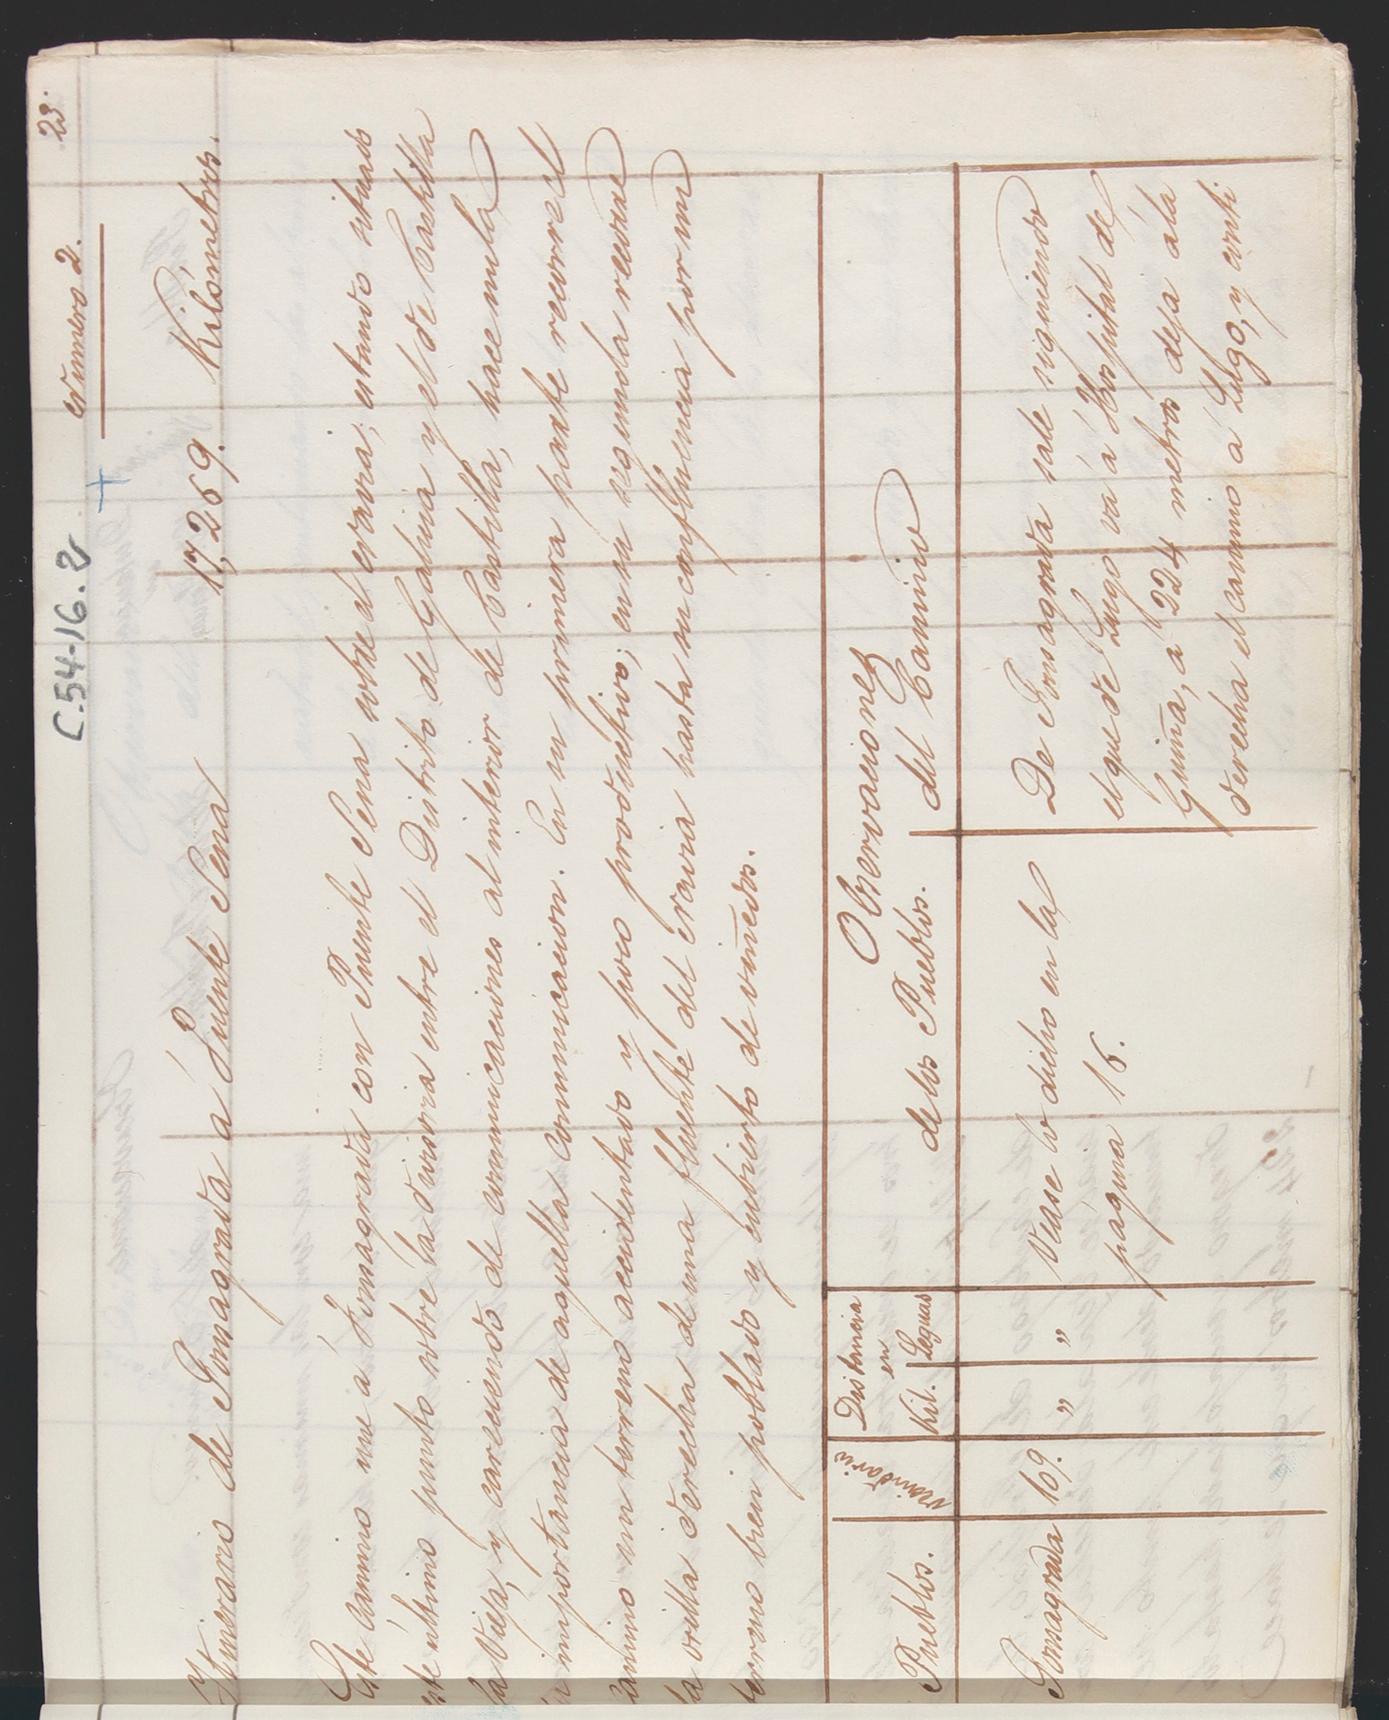 23.
Número 2.
C.54-16.2
Itinerario de Fonsagrada á Puente Sena 17,269. Kilómetros.
Este camino une á Fonsagrada con Puente Sena sobre el eravia; estando situado
este ultimo punto sobre la divisoria entre el Distrito de Galicia y el de Castilla
la Vieja, y careciendo de comunicaciones al interior de Castilla, nace nula
importancia de aquella comunicacion. En su primera parte recorre el
camino un terreno accidentado y poco productivo; en su segunda recorre
la orilla derecha de una fluente del eravia hasta su confluencia por un
terreno bien poblado y cubierto de viñedos.
Pueblos.
Vecindario
Distancia
en
Kil. Leguas
Observaciones
de los Pueblos. del Camino
Fonsagrada 169. " "
Vease lo dicho en la
pagina 16.
De Fonsagrada sale siguiendo
el que de Lugo vá á Hospital de
Guiña, á 224 metros deja á la
derecha el camino á Lugo, y conti